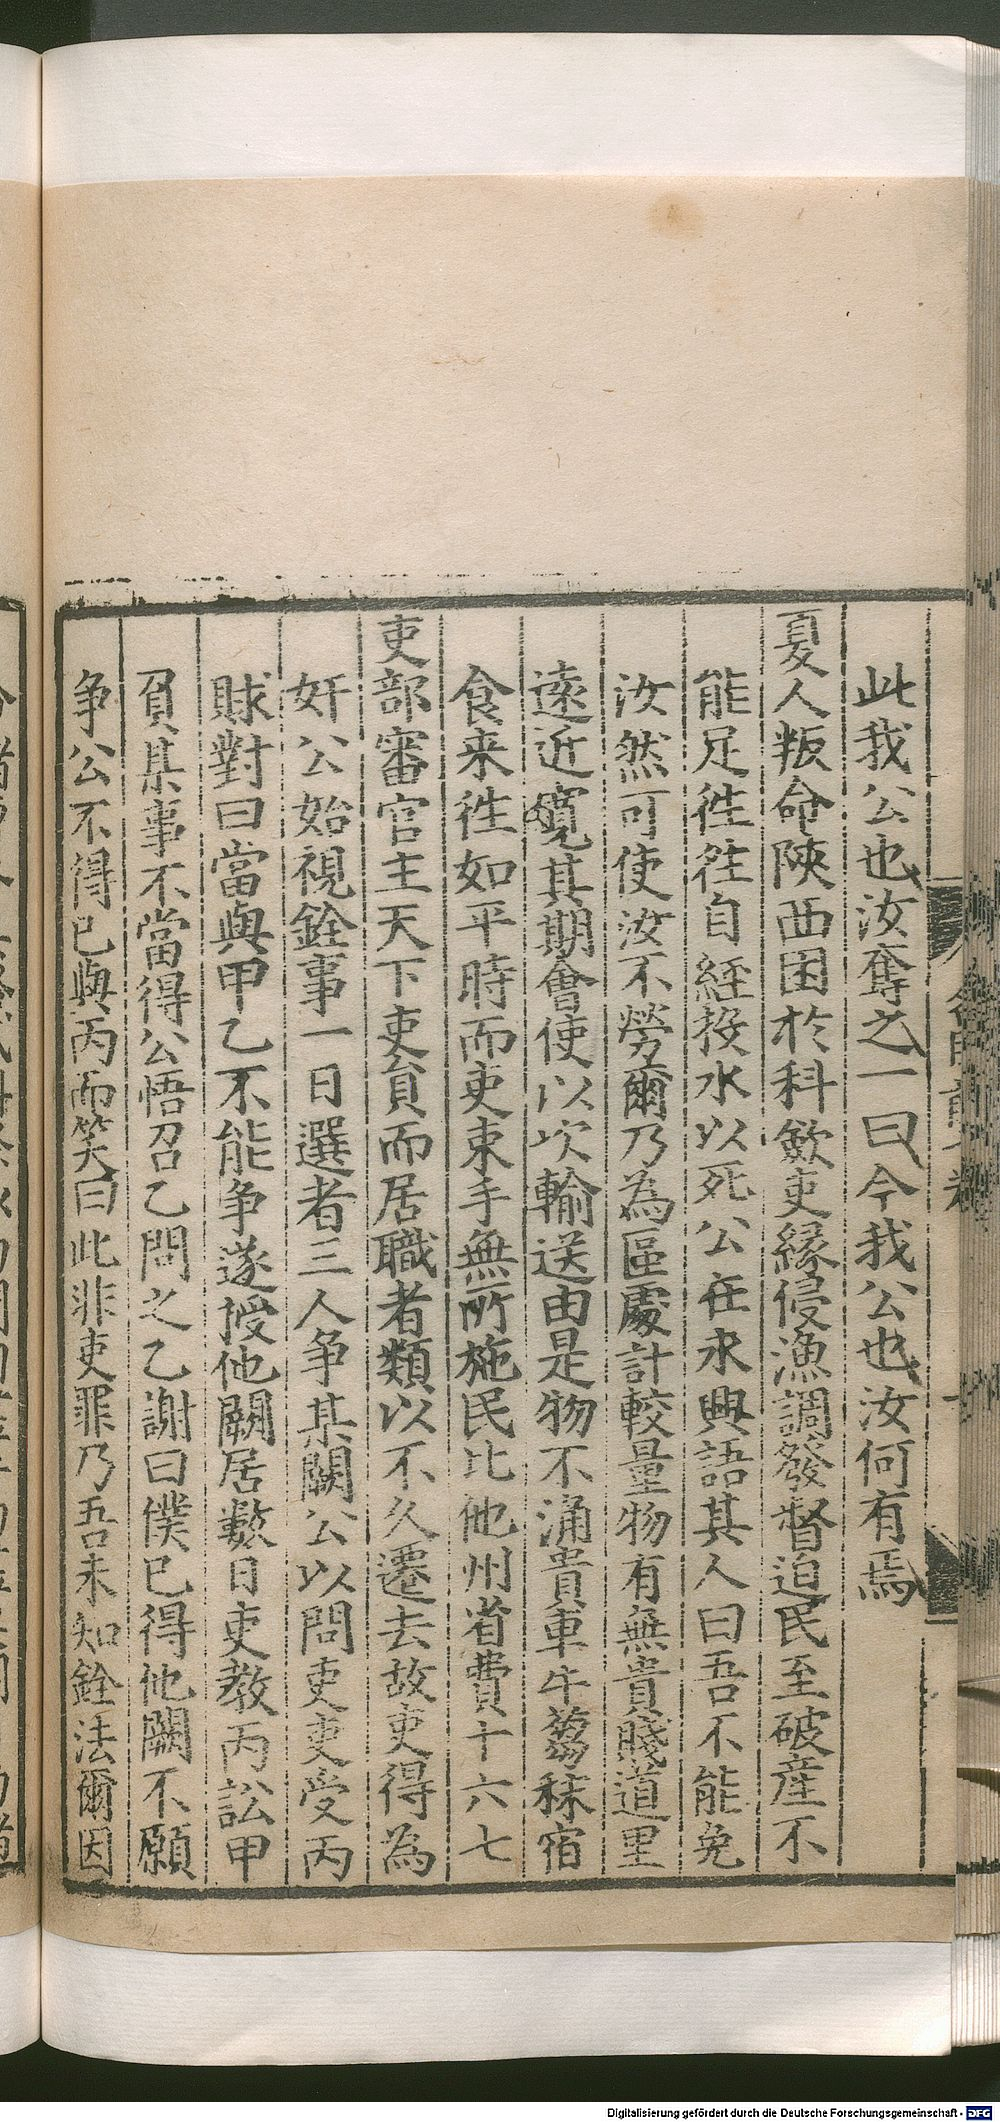 此我公也汝奪之一曰今我公也汝何有焉
夏人叛命陝西困於科歛吏緣侵漁調發督迫民至破產不
能足徃徃自經投水以死公在永興語其人曰吾不能免
汝然可使汝不勞爾乃為區處計較量物有無貴賤道里
遠近寬其期會使以次輸送由是物不涌貴車牛芻秣宿
食来徃如平時而吏束手無所施民比他州省費十六七
吏部審官主天下吏員而居職者類以不久遷去故吏得為
奸公始視銓事一日選者三人争某闕公以問吏吏受丙
賕對曰當與甲乙不能争遂授他闕居數日吏教丙訟甲
負某事不當得公悟召乙問之乙謝曰僕已得他闕不願
争公不得已與丙而笑曰此非吏罪乃吾未知銓法爾因
Digitalisierung gefördert durch die Deutsche Forschungsgemeinschaft - DFG